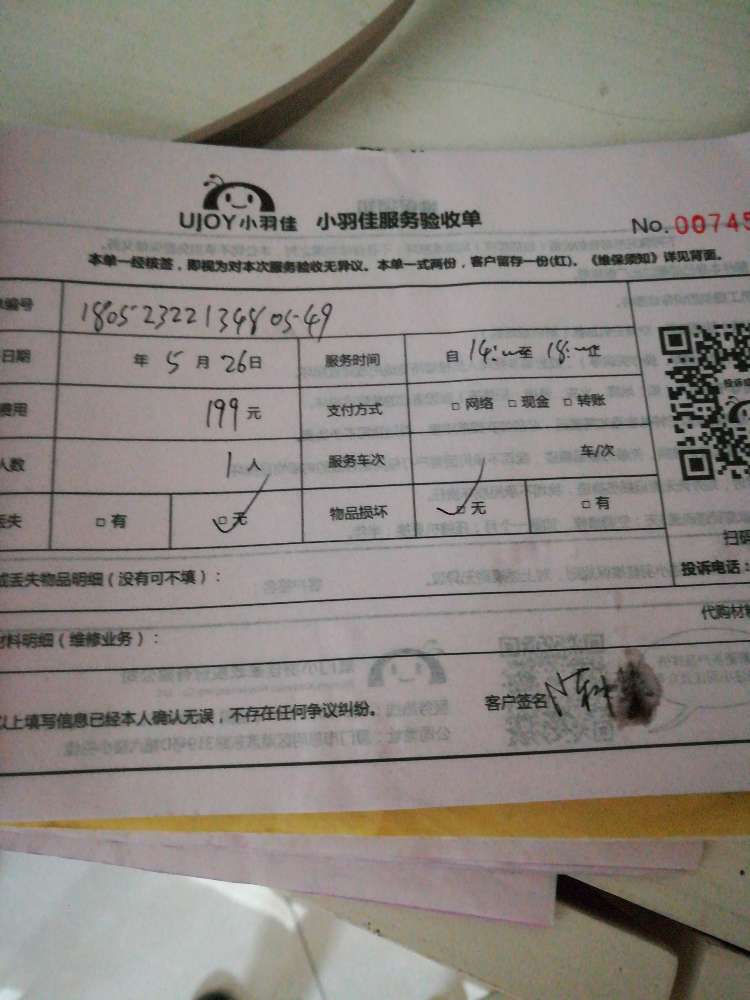 UJOY小羽佳 小羽佳服务验收单
No. 00745
本单一经核签，即视为对本次服务验收无异议。本单一式两份，客户留存一份(红)。《维保须知》详见背面。
编号 18052322134805-49
日期 年 5 月 26 日 服务时间 自 14: 至 18: 止
费用 199 元 支付方式 □ 网络 □ 现金 □ 转账
人数 1 人 服务车次 车/次
丢失 □ 有 □ 无 物品损坏 □ 无 □ 有
或丢失物品明细（没有可不填）：
扫码
投诉电话：
材料明细（维修业务）：
代购材
以上填写信息已经本人确认无误，不存在任何争议纠纷。
客户签名